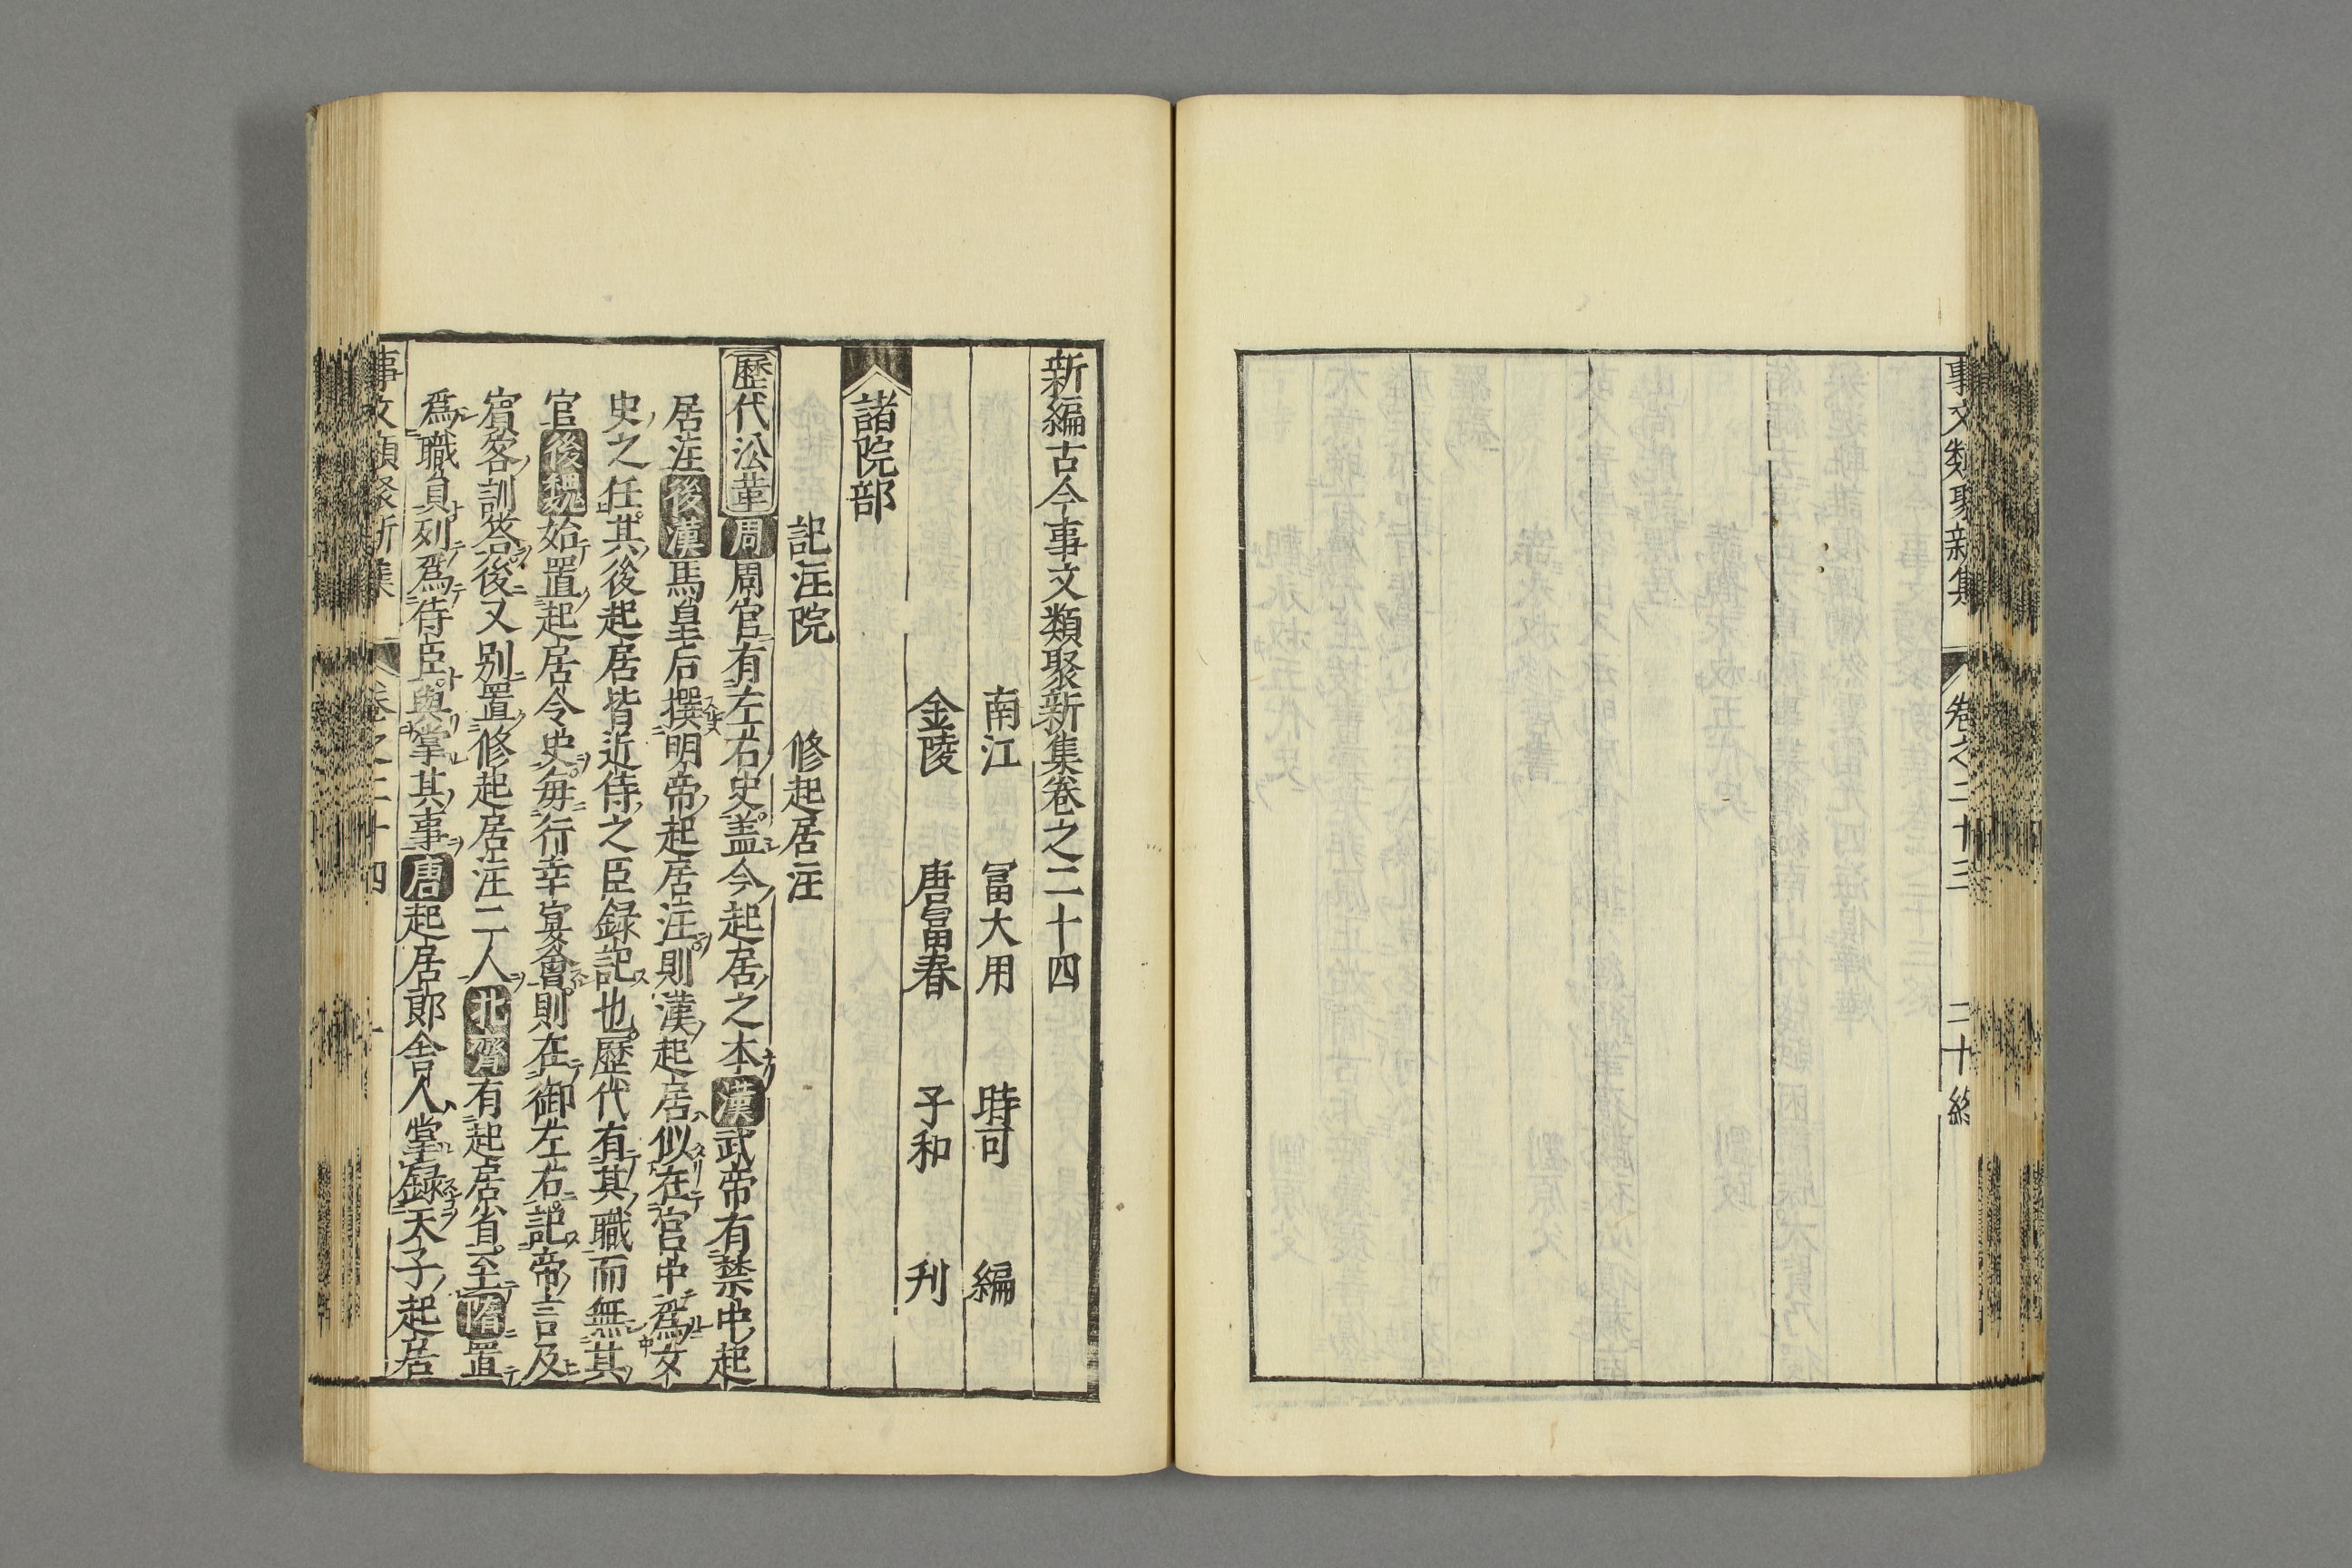 事文類聚新集 卷之二十三 二十終
新編古今事文類聚新集卷之二十四
南江 冨大用 時可 編
金陵 唐冨春 子和 刋
諸院部
記注院 修起居注
歷代㳂革周周官有左右史盖今起居之本漢武帝有禁中起
居注後漢馬皇后撰明帝起居注則漢起居似在宫中爲女
史之任其後起居皆近侍之臣録記也歷代有其職而無其
官後魏始置起居令史每行幸宴會則在御左右記帝言及
賔客訓答後又别置修起居注二人北齊有起居省至隋置
爲職員列爲侍臣與掌其事唐起居郎舍人掌録天子起居
事文類聚新集 卷之二十四 一